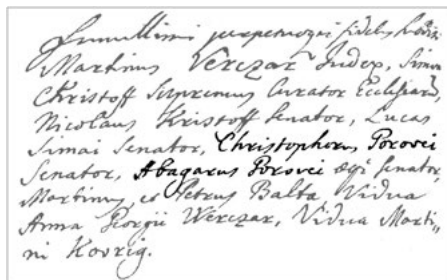 humillimi perpetuoque fideles
Martinus Verczar Judex, Simon
Christoff Supremus Curator Ecclesiarum,
Nicolaus Kristoff Senator, Lucas
Simai Senator, Christophorus Porovci
Senator, Abagarus Porovci aeque Senator,
Martinus, et Petrus Balta Vidua
Anna Georgii Werczar, Vidua Marti„
ni Kovrig.